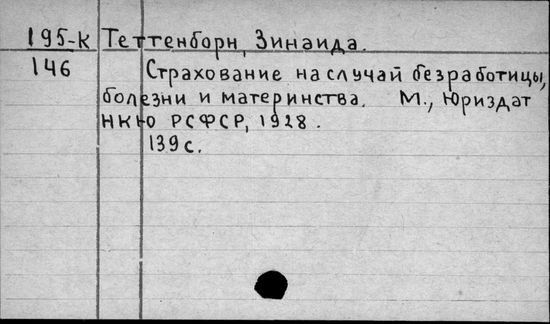 195-к Теттенборн, Зинаида.
146 Страхование на случай безработицы,
болезни и материнства. М., Юриздат
НКЮ РСФСР, 1928.
139 с.